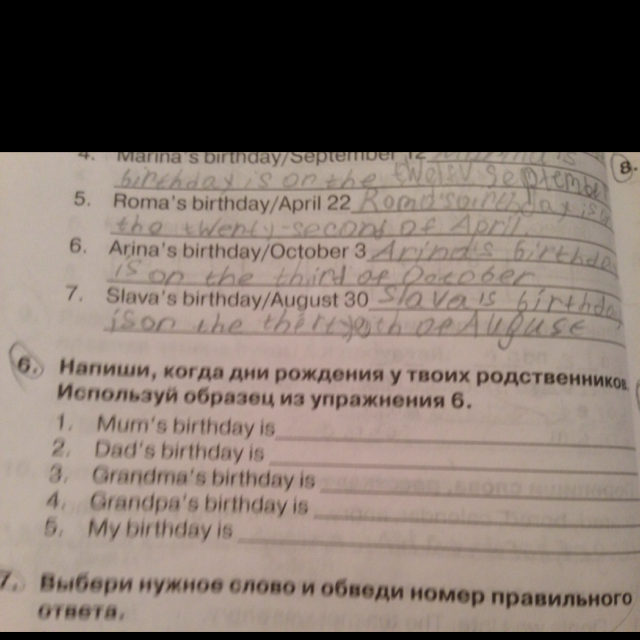 4. Marina's birthday/September 12
birthday is on the twelsv September
5. Roma's birthday/April 22 Roma's birthday is
the twenty-second of April.
6. Arina's birthday/October 3 Arina's birthda
is on the third of October
7. Slava's birthday/August 30 Slava is birthda
is on the of August
8.
6. Напиши, когда дни рождения у твоих родственников.
Используй образец из упражнения 6.
1. Mum's birthday is
2. Dad's birthday is
3. Grandma's birthday is
4. Grandpa's birthday is
5. My birthday is
7. Выбери нужное слово и обведи номер правильного
ответа.